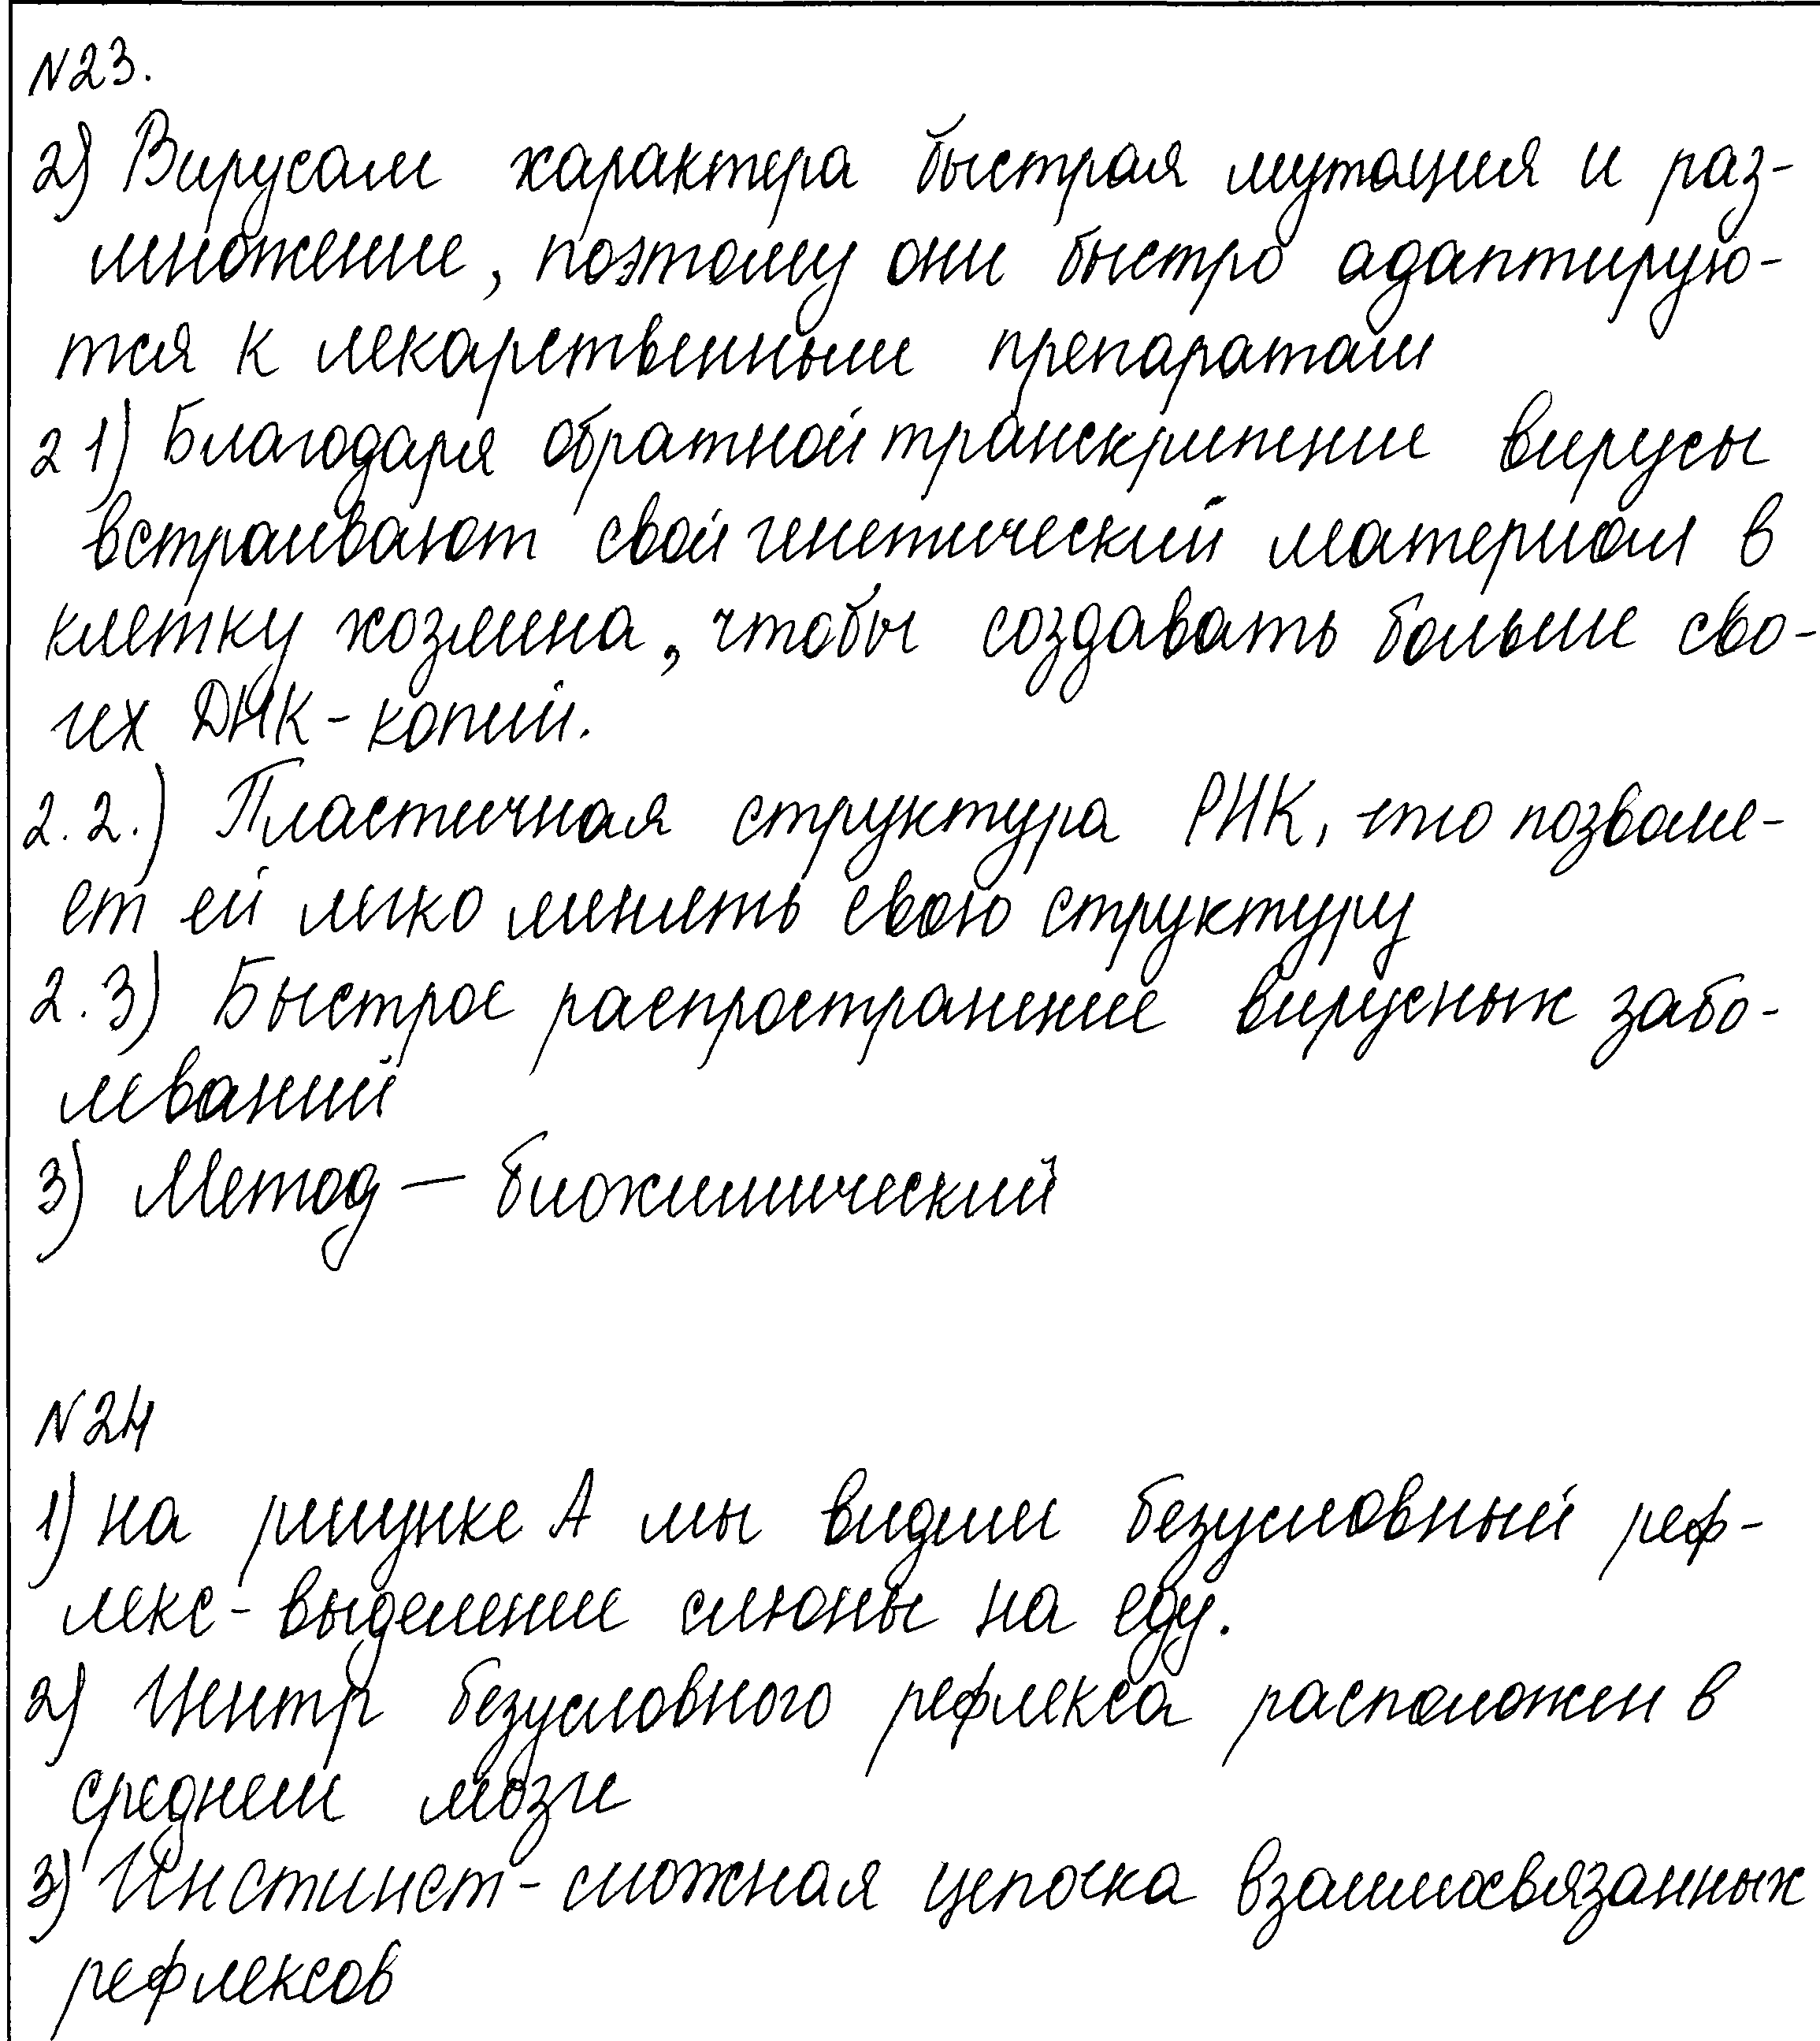 N23.
2) Вирусам характера быстрая мутация и раз-
множение, поэтому они быстро адаптирую-
тся к лекарственным препаратам
21) Благодаря обратной транскрипции вирусы
встраивают свой генетический материал в
клетку хозяина, чтобы создавать больше сво-
их ДНК-копий.
2.2.) Пластичная структура РНК, что позволя-
ет ей легко менять свою структуру
2.3) Быстрое распространение вирусных забо-
леваний
3) Метод - биохимический
N24
1) на рисунке А мы видим безусловный реф-
лекс - выделение слюны на еду.
2) Центр безусловного рефлекса расположен в
среднем мозге
3) Инстинкт - сложная цепочка взаимосвязанных
рефлексов